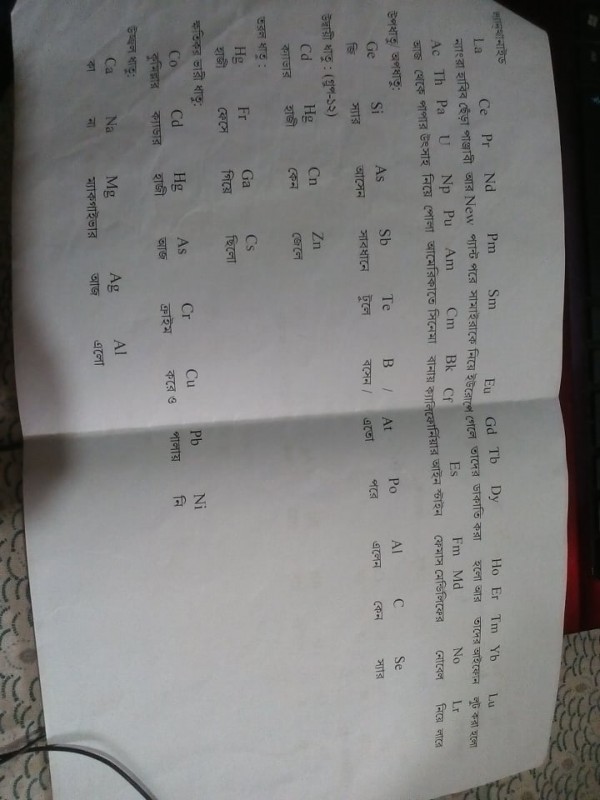 ল্যান্থানাইড
La Ce Pr Nd Pm Sm Eu Gd Tb Dy Ho Er Tm Yb Lu
ল্যাংরা হাবিব ছেঁড়া পাঞ্জাবী আর New প্যান্ট পরে সামাইরাকে নিয়ে ইউরোপে গেলে তাদের ডাকাতি করা হলো আর তাদের আইফোন লুট করা হলো
Ac Th Pa U Np Pu Am Cm Bk Cf Es Fm Md No Lr
আজ থেকে পাপার উৎসাহ নিয়ে পোলা আমেরিকাতে সিনেমা বানায় ক্যালিফোর্নিয়ার আইন স্টাইন ফেমাস মেন্ডিলিফের নোবেল নিয়ে লারে
উপধাতু/ অপধাতু:
Ge Si As Sb Te B / At Po Al C Se
জি স্যার আসেন সাবধানে টুলে বসেন / এতো পরে এলেন কেন স্যার
উদ্বায়ী ধাতু : (গ্রুপ-১২)
Cd Hg Cn Zn
ক্যাডার হাজী কেন জেলে
তরল ধাতু :
Hg Fr Ga Cs
হাজী ফেসে গিয়ে ছিলো
ক্ষতিকর ভারী ধাতু:
Co Cd Hg As Cr Cu Pb Ni
কুমিল্লার ক্যাডার হাজী আজ ক্রাইম করে ও পালায় নি
উজ্জ্বল ধাতু:
Ca Na Mg Ag Al
কা না ম্যাকগাইভার আজ এলো